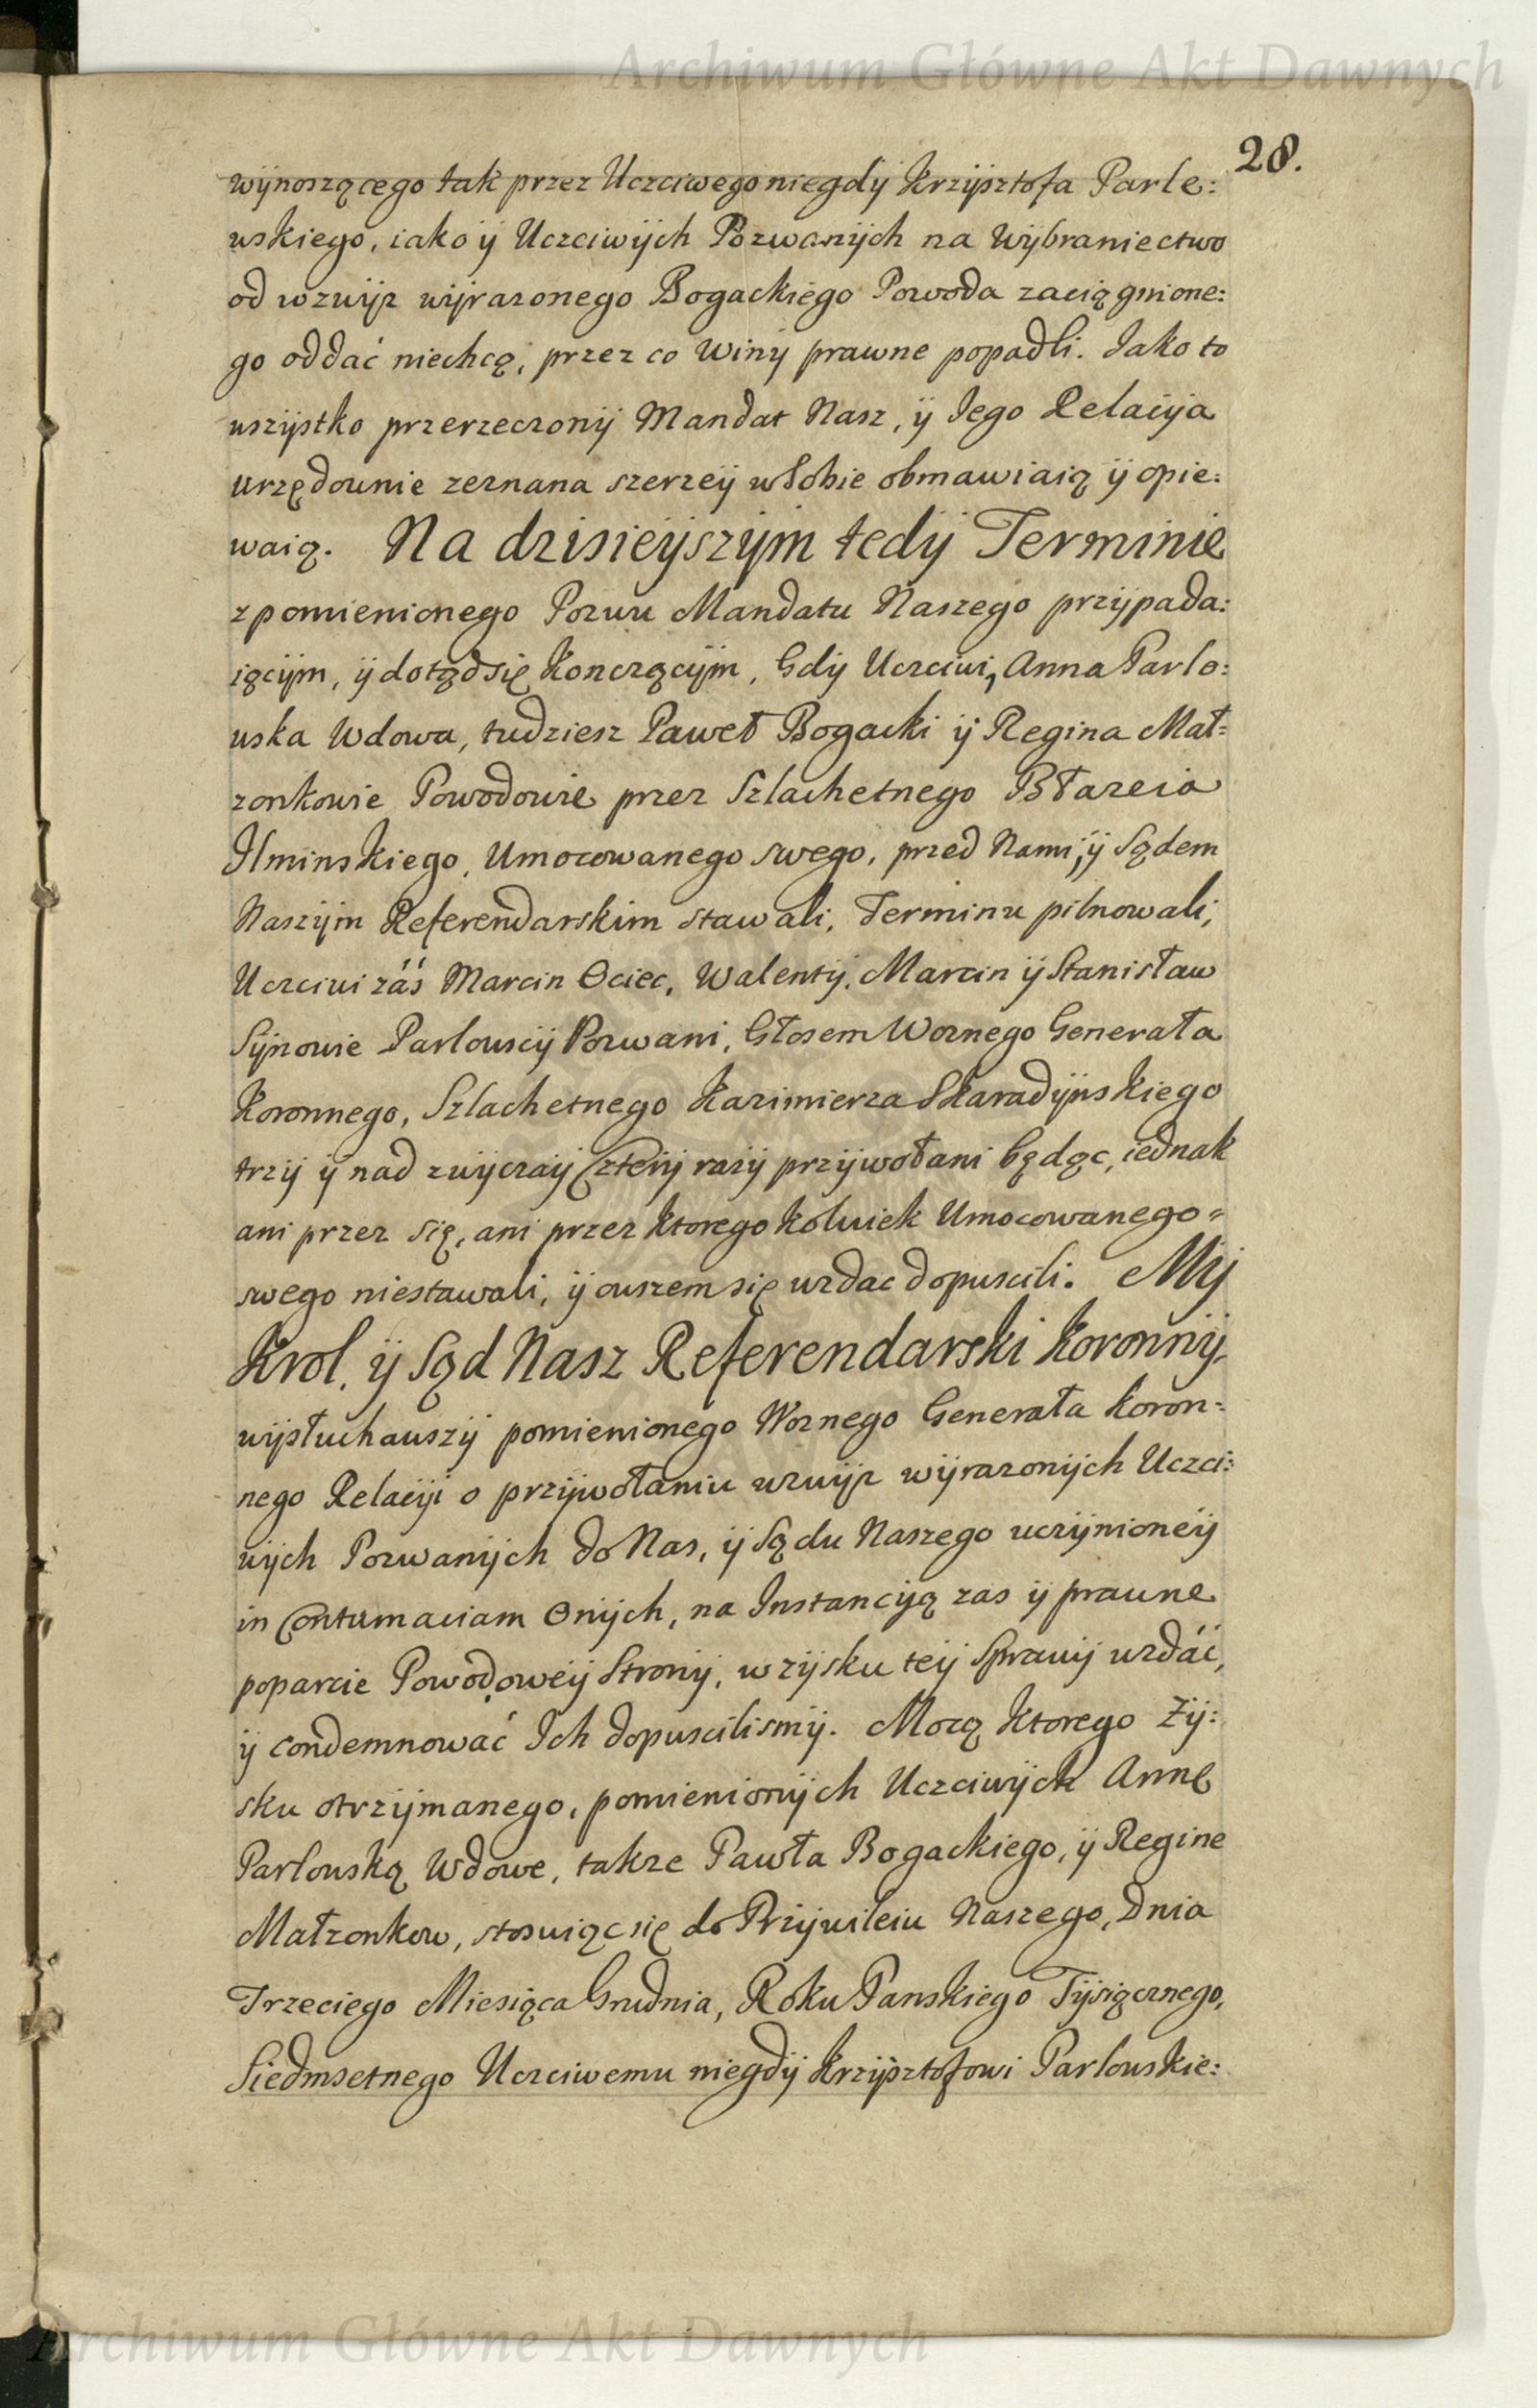 Archiwum Główne Akt Dawnych
28.
wÿnoszącego tak przez Uczciwego niegdÿ Krzÿsztofa Parle:
wskiego, iako ÿ Uczciwÿch Pozwanÿch na Wÿbraniectwo
od wzwÿż wÿrazonego Bogackiego Powoda zaciągnione:
go oddać niechcą, przez co Winÿ prawne popadli. Iako to
wszÿstko przerzeczonÿ Mandat Nasz, ÿ Iego Relacÿa
urzędownie zeznana szerzeÿ w Sobie obmawiaią ÿ opie:
waią. Na dzisieÿszÿm tedÿ Terminie
z pomienionego Pozwu Mandatu Naszego przÿpada:
iącÿm, ÿ dotąd się Konczącÿm, Gdÿ Uczciwi, Anna Parlo:
wska Wdowa, tudziesz Paweł Bogacki ÿ Regina Mał=
zonkowie Powodowie przez Szlachetnego Błazeia
Ilminskiego, Umocowanego swego, przed Nami, ÿ Sądem
Naszÿm Referendarskim stawali, Terminu pilnowali;
Uczciwi záś Marcin Ociec, Walentÿ, Marcin ÿ Stanisław
Sÿnowie Parlowscÿ Pozwani, Głosem Woznego Generała
Koronnego, Szlachetnego Kazimierza Skaradÿnskiego
trzÿ ÿ nad zwÿczaÿ Czterÿ razÿ przÿwołani bądąc, iednak
ani przez się, ani przez ktorego kolwiek Umocowanego=
swego niestawali, ÿ owszem się wzdac dopuscili. Mÿ
Krol, ÿ Sąd Nasz Referendarski Koronnÿ,
wÿsłuchawszÿ pomienionego Woznego Generała Koron=
nego Relacÿi o przÿwołaniu wzwÿż wÿrazonÿch Uczci:
wÿch Pozwanÿch do Nas, ÿ Sądu Naszego uczÿnioneÿ
in Contumaciam Onÿch, na Instancÿą zas ÿ prawne
poparcie Powodoweÿ Stronÿ, w zÿsku teÿ Sprawÿ wzdáć,
ÿ condemnować Ich dopuscilismÿ. Mocą ktorego Zÿ:
sku otrzÿmanego, pomienionÿch Uczciwÿch Annę
Parlowską Wdowe, takze Pawła Bogackiego, ÿ Regine
Małzonkow, stosuiąc się do Przÿwileiu Naszego, Dnia
Trzeciego Miesiąca Grudnia, Roku Panskiego Tÿsiącznego,
Siedmsetnego Uczciwemu niegdÿ Krzÿsztofowi Parlowskie:
Archiwum Główne Akt Dawnych